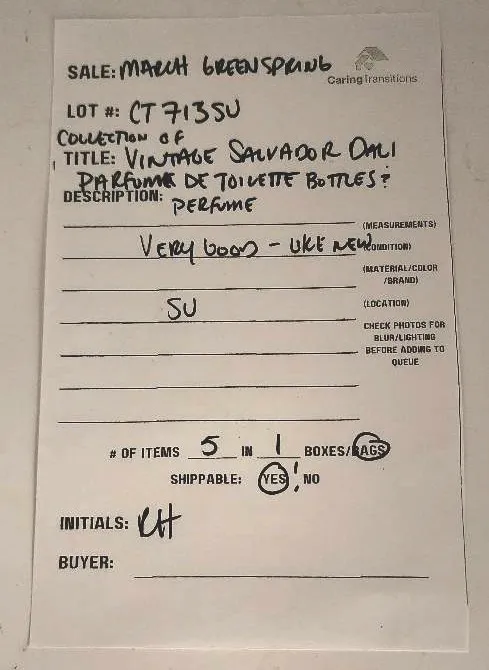 SALE: MARCH GREENSPRING
CaringTransitions
LOT #: CT713SU
COLLECTION OF
TITLE: VINTAGE SALVADOR DALI
PARFUMK DE TOILETTE BOTTLES?
DESCRIPTION: PERFUME
(MEASUREMENTS)
VERY GOOD - LIKE NEW (CONDITION)
(MATERIAL/COLOR
/BRAND)
SU (LOCATION)
CHECK PHOTOS FOR
BLUR/LIGHTING
BEFORE ADDING TO
QUEUE
# OF ITEMS 5 IN 1 BOXES/BAGS
SHIPPABLE: YES! NO
INITIALS: RH
BUYER: